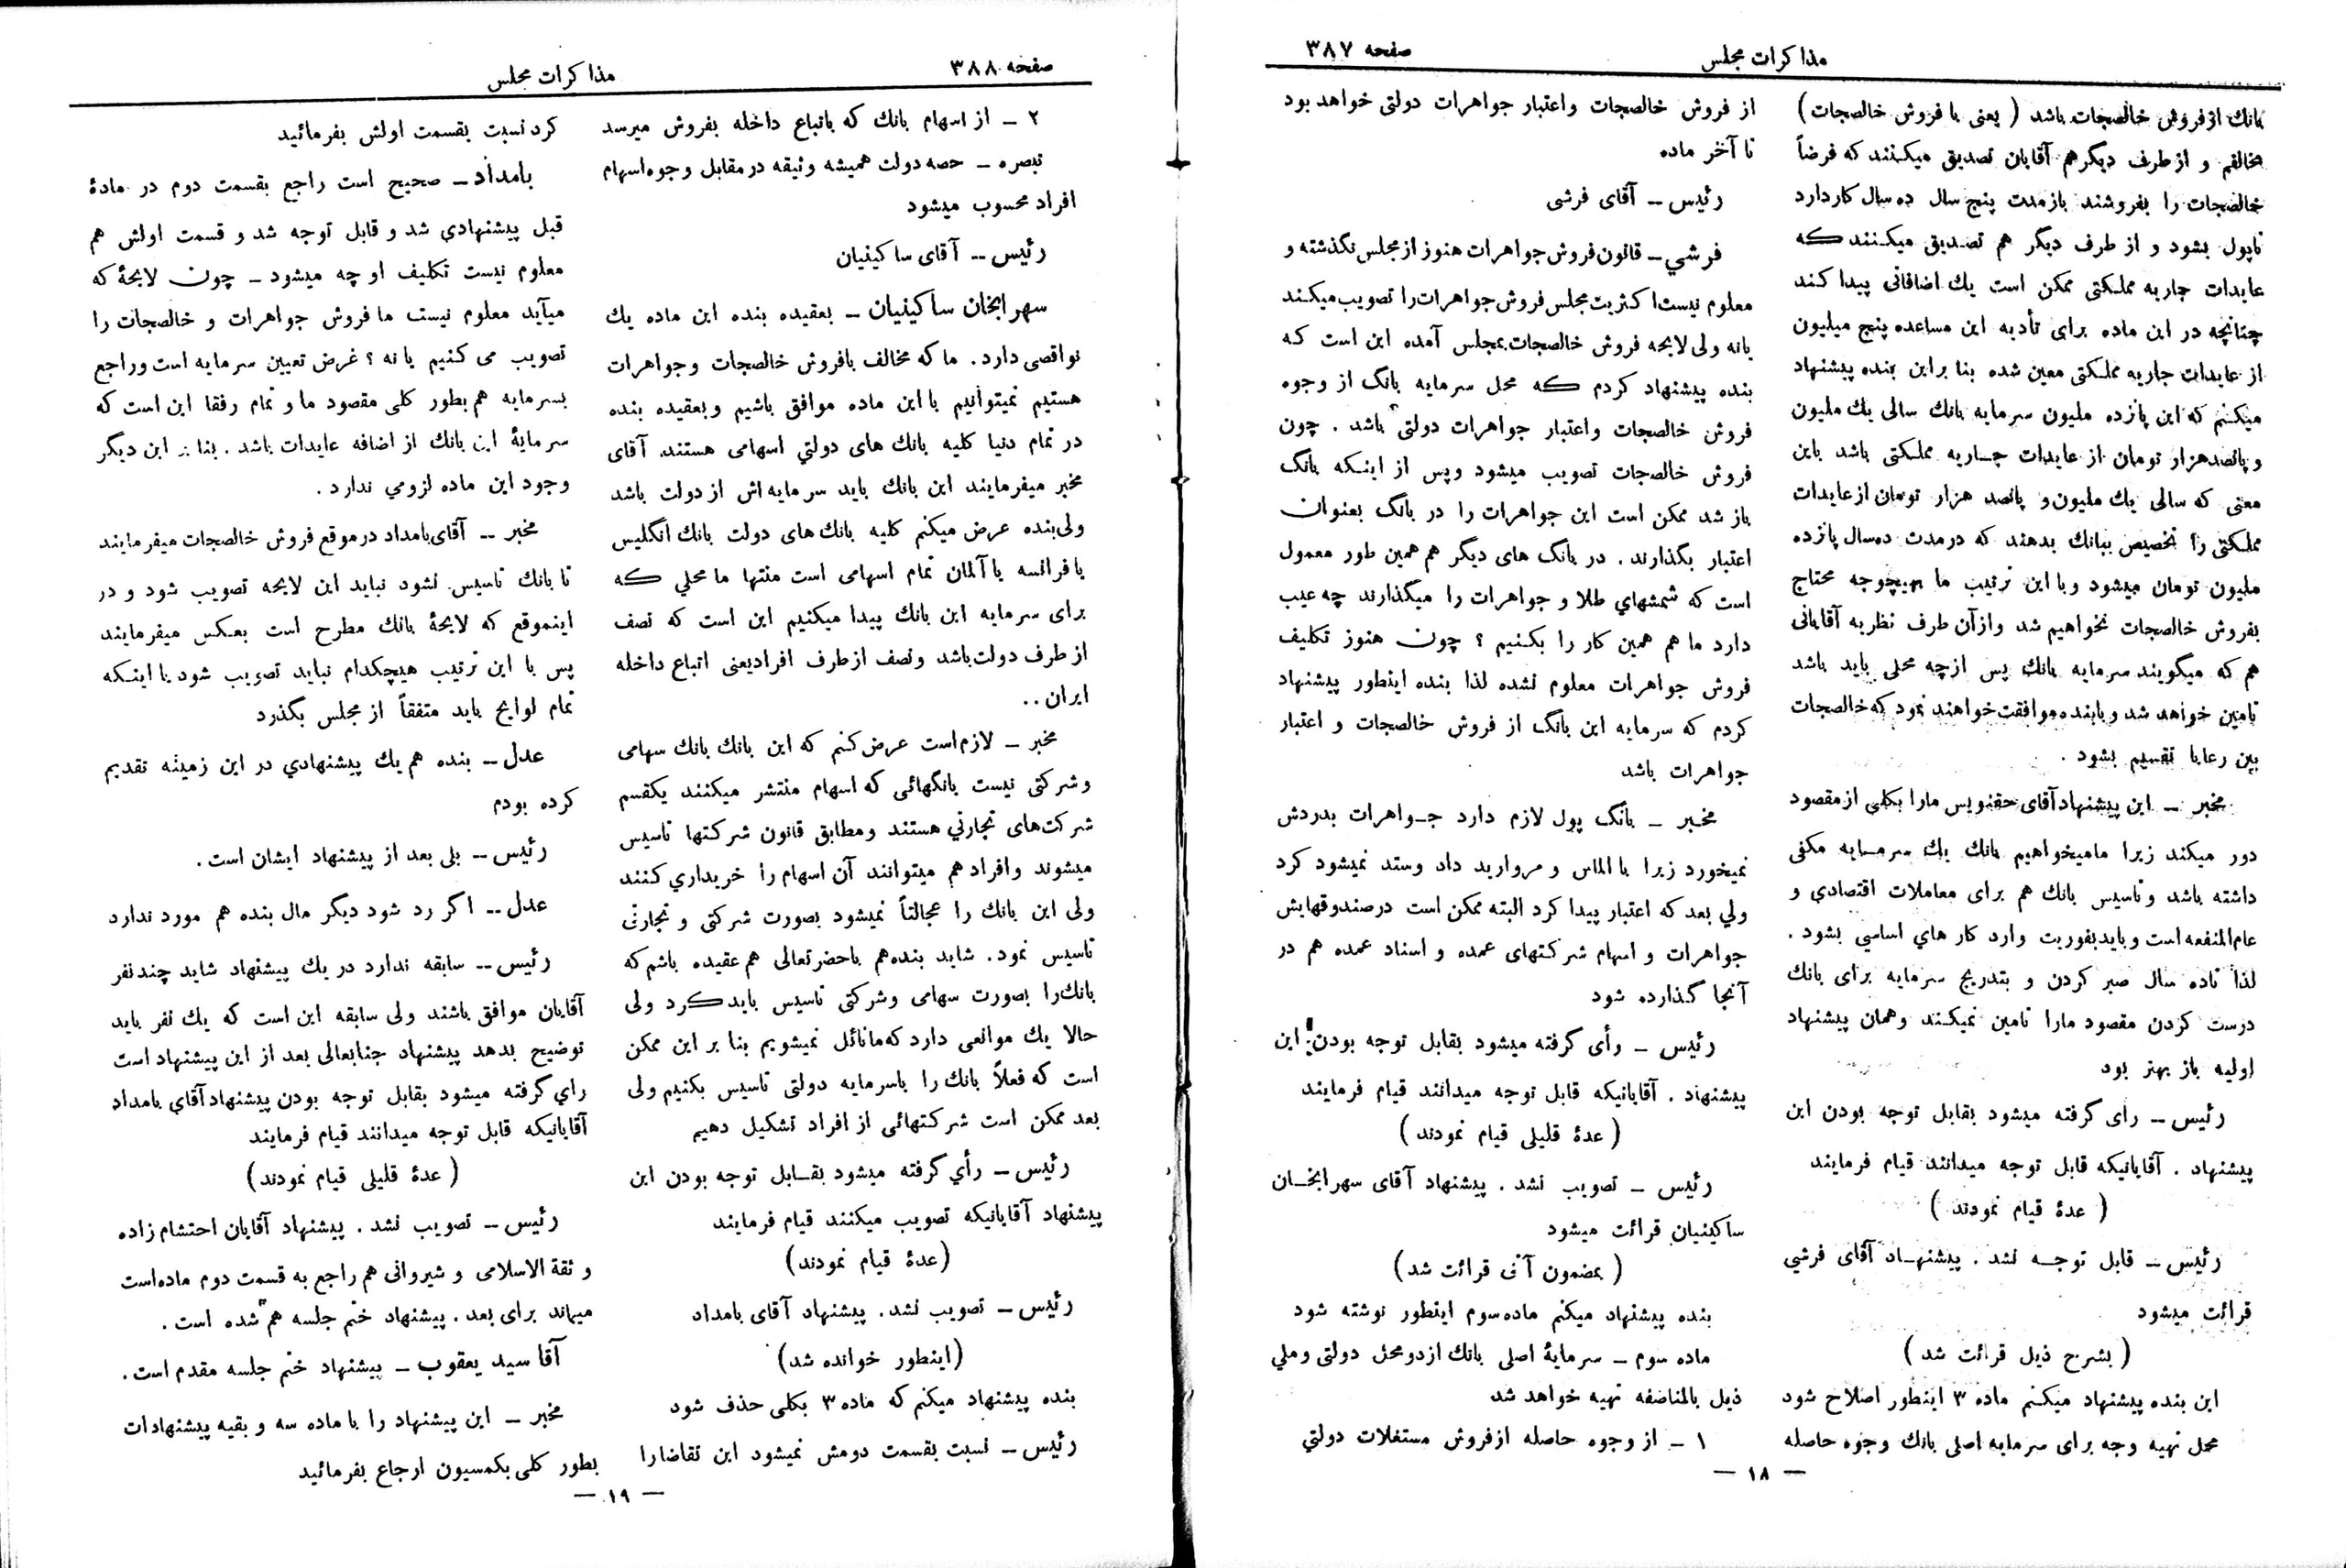 مذاکرات مجلس
صفحه ۳۸۷
بانك ازفروش خالصجات باشد ( یعنی با فروش خالصجات )
مخالفم و از طرف دیگر هم آقایان تصدیق میکنند که فرضاً
خالصجات را بفروشند بازمدت پنج سال ده سال کار دارد
تاپول بشود و از طرف دیگر هم تصدیق میکنند که
عایدات جاریه مملکتی ممکن است یك اضافاتی پیدا کند
چنانچه در این ماده برای تأدیه این مساعده پنج میلیون
از عایدات جاریه مملکتی معین شده بنا براین بنده پیشنهاد
میکنم که این پازده ملیون سرمایه بانك سالی یك ملیون
و پانصدهزار تومان از عایدات جاریه مملکتی باشد باین
معنی که سالی یك ملیون و پانصد هزار تومان از عایدات
مملکتی را تخصیص ببانك بدهند که در مدت ده‌سال پانزده
ملیون تومان میشود و با این ترتیب ما بهیچوجه محتاج
بفروش خالصجات نخواهیم شد و ازآن طرف نظر به آقایانی
هم که میگویند سرمایه بانك پس ازچه محلی باید باشد
تامین خواهد شد و بابنده موافقت خواهند نمود که خالصجات
بین رعایا تقسیم بشود .
مخبر – این پیشنهاد آقای حقنویس مارا بکلی از مقصود
دور میکند زیرا مامیخواهیم بانك یك سرمایه مکفی
داشته باشد و تاسیس بانك هم برای معاملات اقتصادی و
عام‌المنفعه است و باید بفوریت وارد کار هاي اساسي بشود .
لذا تاده سال صبر کردن و بتدریج سرمایه برای بانك
درست کردن مقصود مارا تامین نمیکند و همان پیشنهاد
اولیه باز بهتر بود
رئیس – رای گرفته میشود بقابل توجه بودن این
پیشنهاد . آقایانیکه قابل توجه میدانند قیام فرمایند
( عدهٔ قیام نمودند )
رئیس – قابل توجه نشد . پیشنهاد آقای فرشي
قرائت میشود
( بشرح ذیل قرائت شد )
این بنده پیشنهاد میکنم ماده ۳ اینطور اصلاح شود
محل تهیه وجه برای سرمایه اصلی بانك وجوه حاصله
از فروش خالصجات واعتبار جواهرات دولتی خواهد بود
تا آخر ماده
رئیس – آقای فرشی
فرشي – قانون فروش جواهرات هنوز از مجلس نگذشته و
معلوم نیست اکثریت مجلس فروش جواهرات را تصویب میکند
یانه ولی لایحه فروش خالصجات بمجلس آمده این است که
بنده پیشنهاد کردم که محل سرمایه بانگ از وجوه
فروش خالصجات واعتبار جواهرات دولتی باشد . چون
فروش خالصجات تصویب میشود وپس از اینکه بانگ
باز شد ممکن است این جواهرات را در بانگ بعنوان
اعتبار بگذارند . در بانگ های دیگر هم همین طور معمول
است که شمشهاي طلا و جواهرات را میگذارند چه عیب
دارد ما هم همین کار را بکنیم ؟ چون هنوز تکلیف
فروش جواهرات معلوم نشده لذا بنده اینطور پیشنهاد
کردم که سرمایه این بانگ از فروش خالصجات و اعتبار
جواهرات باشد
مخبر – بانگ پول لازم دارد جواهرات بدردش
نمیخورد زیرا با الماس و مروارید داد وستد نمیشود کرد
ولي بعد که اعتبار پیدا کرد البته ممکن است درصندوقهایش
جواهرات و اسهام شرکتهای عمده و اسناد عمده هم در
آنجا گذارده شود
رئیس – رأی گرفته میشود بقابل توجه بودن این
پیشنهاد . آقایانیکه قابل توجه میدانند قیام فرمایند
( عدهٔ قلیلی قیام نمودند )
رئیس – تصویب نشد . پیشنهاد آقای سهرابخان
ساکینیان قرائت میشود
( بمضمون آنی قرائت شد )
بنده پیشنهاد میکنم ماده‌سوم اینطور نوشته شود
ماده سوم – سرمایهٔ اصلی بانك ازدومحل دولتی وملي
ذیل بالمناصفه تهیه خواهد شد
۱ – از وجوه حاصله ازفروش مستغلات دولتي
— ۱۸ —
صفحه ۳۸۸
مذاکرات مجلس
۲ – از اسهام بانك که باتباع داخله بفروش میرسد
تبصره – حصه دولت همیشه وثیقه درمقابل وجوه‌اسهام
افراد محسوب میشود
رئیس – آقای ساکینیان
سهرابخان ساکینیان – بعقیده بنده این ماده یك
نواقصی دارد . ما که مخالف بافروش خالصجات وجواهرات
هستیم نمیتوانیم با این ماده موافق باشیم و بعقیده بنده
در تمام دنیا کلیه بانك های دولتي اسهامی هستند. آقای
مخبر میفرمایند این بانك باید سرمایه‌اش از دولت باشد
ولی‌بنده عرض میکنم کلیه بانك های دولت بانك انگلیس
یا فرانسه یا آلمان تمام اسهامی است منتها ما محلي که
برای سرمایه این بانك پیدا میکنیم این است که نصف
از طرف دولت باشد ونصف ازطرف افراد یعنی اتباع داخله
ایران . .
مخبر – لازم‌است عرض‌کنم که این بانك بانك سهامی
وشرکتی نیست بانگهائی که اسهام منتشر میکنند یکقسم
شرکت‌های تجارتي هستند ومطابق قانون شرکتها تاسیس
میشوند وافراد هم میتوانند آن اسهام را خریداري کنند
ولی این بانك را عجالتاً نمیشود بصورت شرکتی و تجارتی
تاسیس نمود . شاید بنده‌هم باحضرتعالی هم عقیده باشم که
بانك‌را بصورت سهامی وشرکتی تاسیس باید کرد ولی
حالا یك موانعی دارد که‌مانائل نمیشویم بنا بر این ممکن
است که فعلاً بانك را باسرمایه دولتی تاسیس بکنیم ولی
بعد ممکن است شرکتهائی از افراد تشکیل دهیم
رئیس – رأي گرفته میشود بقابل توجه بودن این
پیشنهاد آقایانیکه تصویب میکنند قیام فرمایند
(عدهٔ قیام نمودند)
رئیس – تصویب نشد. پیشنهاد آقای بامداد
(اینطور خوانده شد)
بنده پیشنهاد میکنم که ماده ۳ بکلی حذف شود
رئیس – نسبت بقسمت دومش نمیشود این تقاضارا
کرد نسبت بقسمت اولش بفرمائید
بامداد – صحیح است راجع بقسمت دوم در مادهٔ
قبل پیشنهادي شد و قابل توجه شد و قسمت اولش هم
معلوم نیست تکلیف او چه میشود – چون لایحهٔ که
میآید معلوم نیست ما فروش جواهرات و خالصجات را
تصویب می کنیم یا نه ؟ غرض تعیین سرمایه است وراجع
بسرمایه هم بطور کلی مقصود ما و تمام رفقا این است که
سرمایهٔ این بانك از اضافه عایدات باشد . بنا بر این دیگر
وجود این ماده لزومي ندارد .
مخبر – آقای بامداد در موقع فروش خالصجات میفرمایند
تا بانك تاسیس نشود نباید این لایحه تصویب شود و در
اینموقع که لایحهٔ بانك مطرح است بعکس میفرمایند
پس با این ترتیب هیچکدام نباید تصویب شود با اینکه
تمام لوایح باید متفقاً از مجلس بگذرد
عدل – بنده هم یك پیشنهادي در این زمینه تقدیم
کرده بودم
رئیس – بلی بعد از پیشنهاد ایشان است .
عدل – اگر رد شود دیگر مال بنده هم مورد ندارد
رئیس – سابقه ندارد در یك پیشنهاد شاید چند نفر
آقایان موافق باشند ولی سابقه این است که یك نفر باید
توضیح بدهد پیشنهاد جنابعالی بعد از این پیشنهاد است
راي گرفته میشود بقابل توجه بودن پیشنهاد آقاي بامداد
آقایانیکه قابل توجه میدانند قیام فرمایند
( عدهٔ قلیلی قیام نمودند)
رئیس – تصویب نشد . پیشنهاد آقایان احتشام زاده
و ثقة الاسلامی و شیروانی هم راجع به قسمت دوم ماده‌است
میماند برای بعد . پیشنهاد ختم جلسه هم شده است .
آقا سید یعقوب – پیشنهاد ختم جلسه مقدم است .
مخبر – این پیشنهاد را با ماده سه و بقیه پیشنهادات
بطور کلی بکمسیون ارجاع بفرمائید
— ۱۹ —